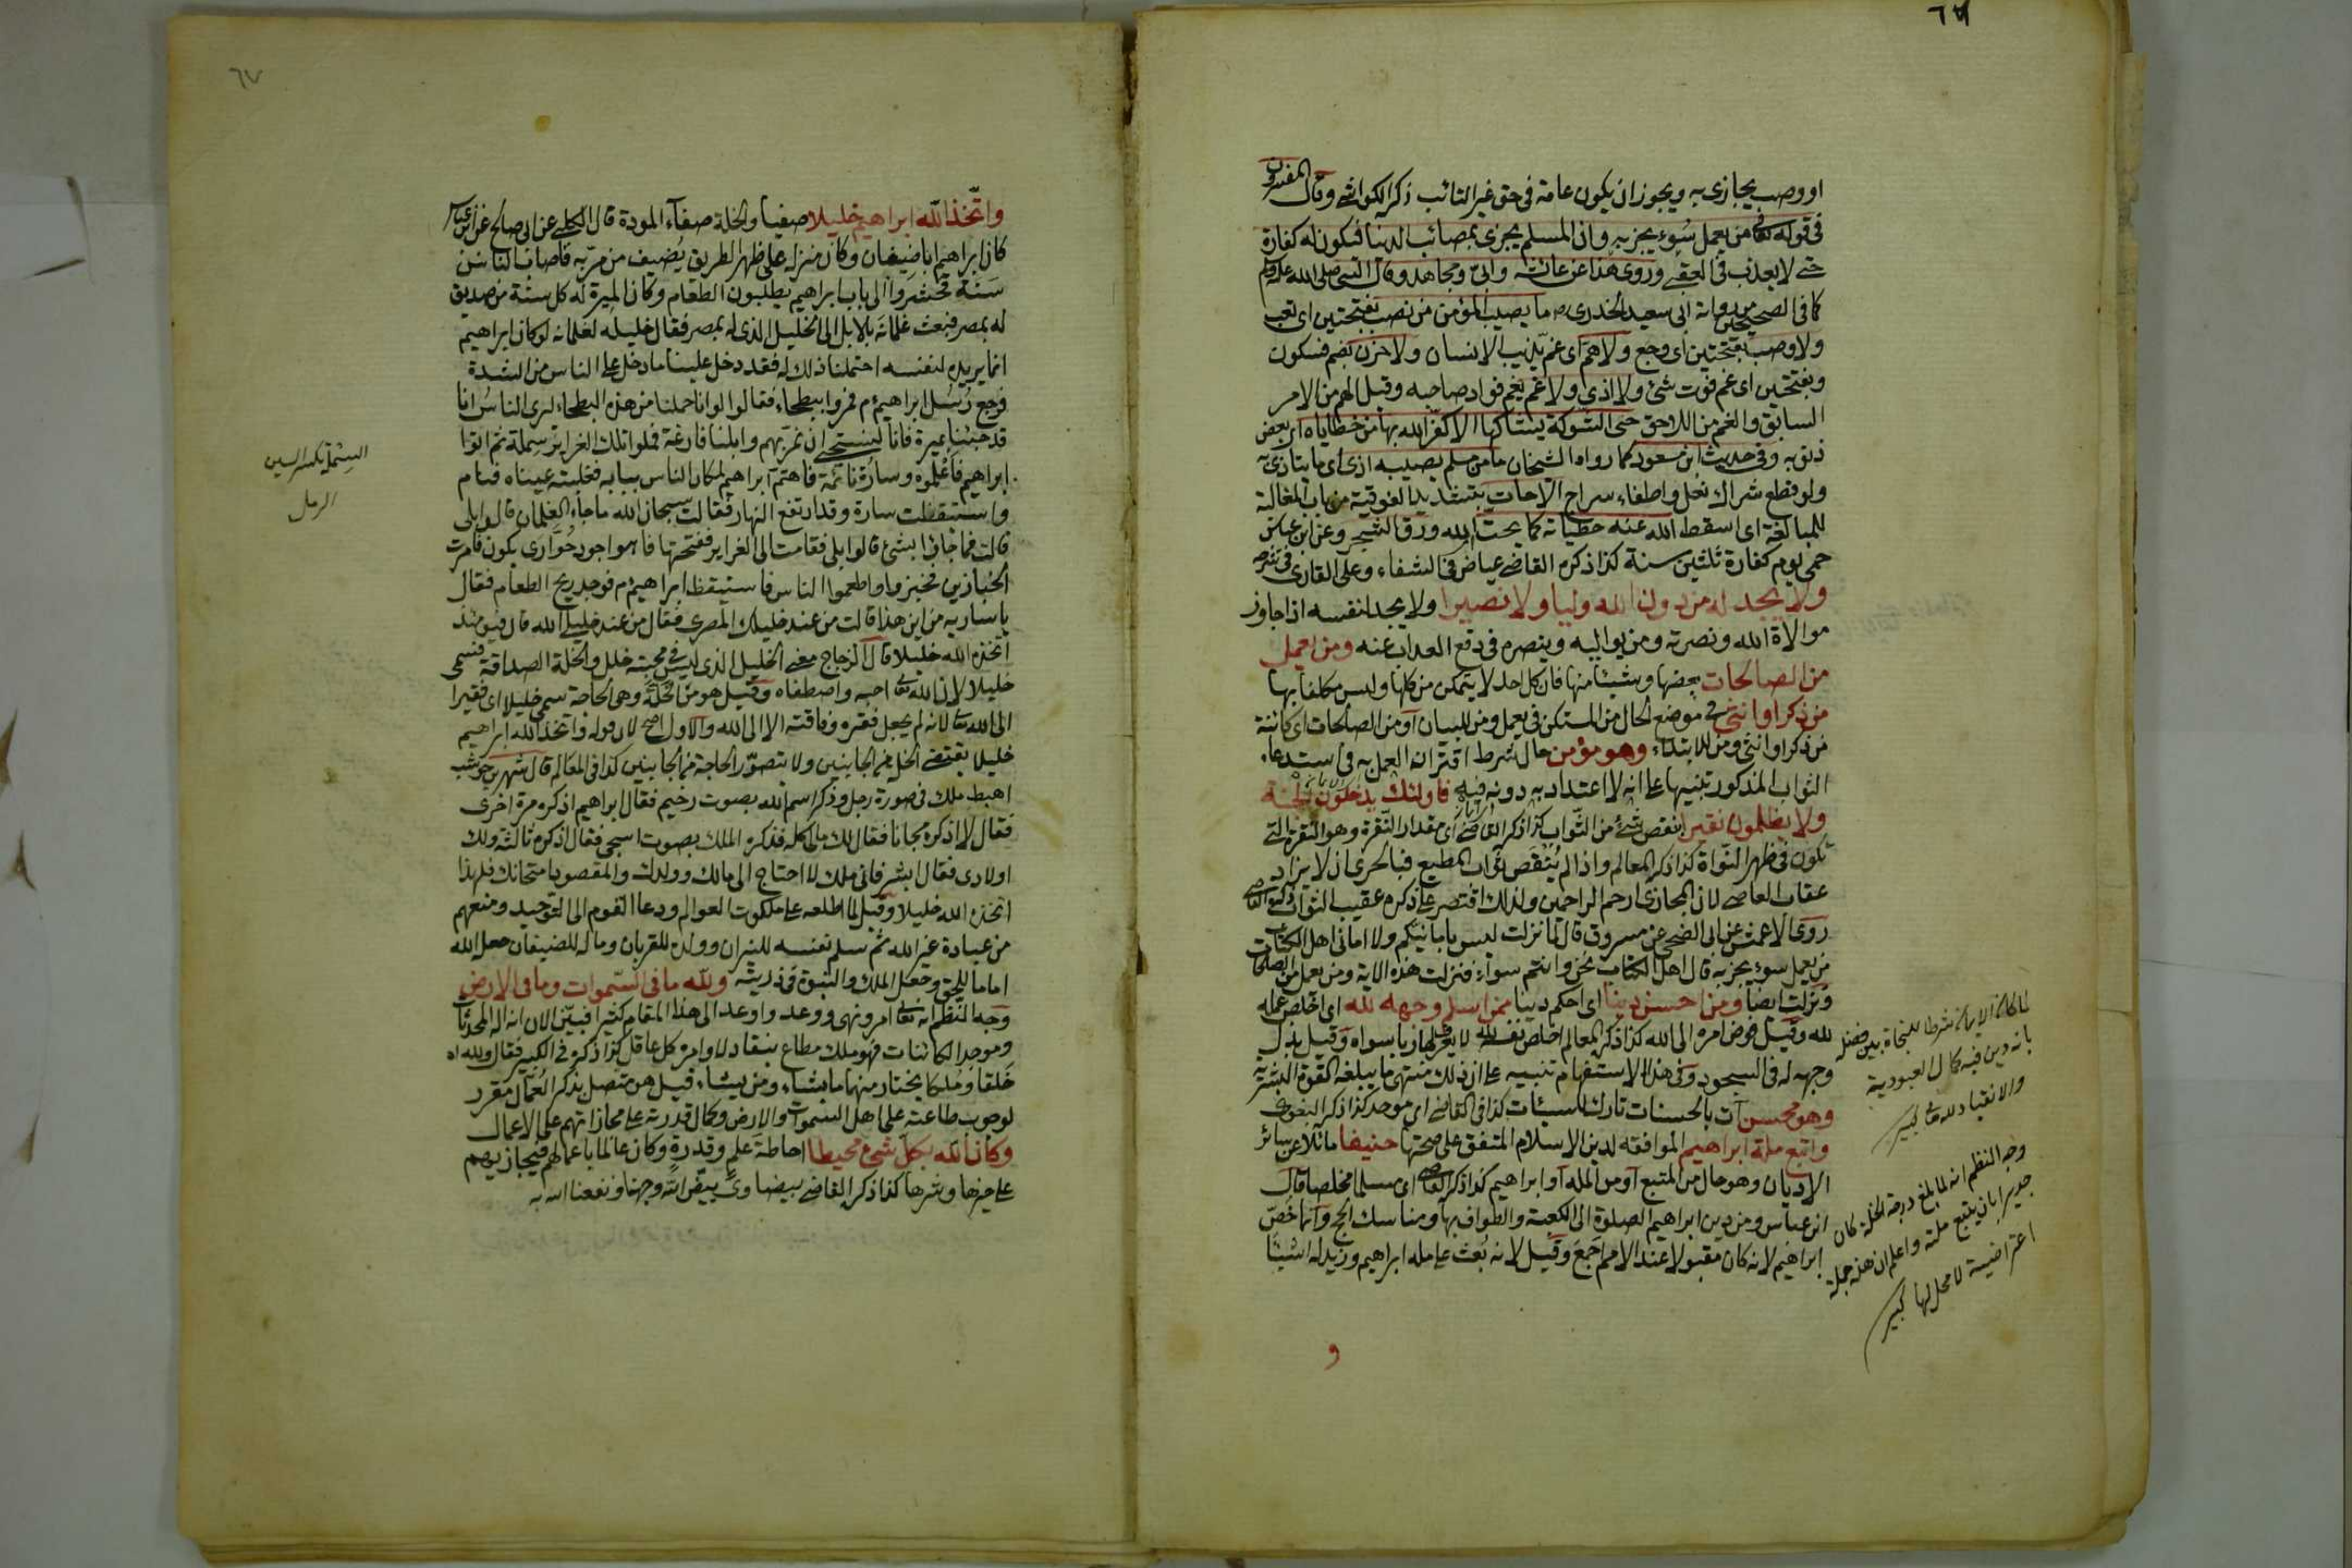 او وصب يجازى به ويجوز ان يكون عامة فى حق غير التائب ذكر الكواشى وقال المفسرون
فى قوله تعالى من يعمل سوء يجز به وان المسلم يجزى بمصائب الدنيا فتكون له كفارة
حتى لا يعذب فى العقبى وروى هذا عن عائشة وابىّ ومجاهد وقال النبى صلى الله عليه وسلم
كما فى الصحيحين من رواية ابى سعيد الخدرى ما يصيب المؤمن من نصب بفتحتين اى تعب
ولا وصب بفتحتين اى وجع ولا همّ اى غم يذيب الانسان ولا حزن بضم فسكون
وبفتحتين اى غم فوت شئ ولا اذى ولا غم يغم فواد صاحبه وقيل الهم من الامر
السابق والغم من اللاحق حتى الشوكة يشتاكها الا كفّر الله بها من خطاياه اى بعض
ذنوبه وفى حديث ابن مسعود كما رواه الشيخان ما من مسلم يصيبه اذى اى ما يتاذى به
ولو قطع شراك نعل واطفاء سراج الا حاتّ بتشديد الفوقية من باب المغالبة
للمبالغة اى اسقط الله عنه خطياته كما يحت الله ورق الشجر وعن ابن عباس
حمى يوم كفارة ثلثين سنة كذا ذكره القاضى عياض فى الشفاء وعلى القارى فى شرحه
ولا يجد له من دون الله وليا ولا نصيرا ولا يجد لنفسه اذا جاوز
موالاة الله ونصرته ومن يواليه وينصره فى دفع العذاب عنه ومن يعمل
من الصالحات بعضها وشيئا منها فان كل احد لا يتمكن من كلها وليس مكلفا بها
من ذكر او انثى فى موضع الحال من المستكن فى يعمل ومن للبيان او من الصالحات اى كائنة
من ذكر او انثى ومن للابتداء وهو مؤمن حال شرط اقتران العمل به فى استدعاء
الثواب المذكور تنبيها على انه لا اعتداد به دونه فيه فاولئك يدخلون الجنة
ولا يظلمون نقيرا بنقص شئ من الثواب كذا ذكر القاضى اى مقدار النقرة وهو النقرة التى
تكون فى ظهر النواة كذا ذكر المعالم واذا لم ينقص ثواب المطيع فبالحرى ان لا يزاد
عقاب العاصى لان المجازى ارحم الراحمين ولذلك اقتصر على ذكره عقيب الثواب
روى الاعمش عن ابى الضحى عن مسروق قال لما نزلت ليس بامانيكم ولا امانى اهل الكتاب
من يعمل سوء يجز به قال اهل الكتاب نحن وانتم سواء فنزلت هذه الاية ومن يعمل من الصالحات
ونزلت ايضا ومن احسن دينا اى احكم دينا ممن اسلم وجهه لله اى اخلص عمله
لله وقيل فوض امره الى الله كذا ذكر المعالم اخلص نفسه لله لا يعرف لها ربا سواه وقيل بذل
وجهه له فى السجود وفى هذا الاستفهام تنبيه على ان ذلك منتهى ما يبلغه القوة البشرية
وهو محسن آت بالحسنات تارك للسيئات كذا فى القاضى اى موحد كذا ذكر البغوى
واتبع ملة ابراهيم الموافقة لدين الاسلام المتفق على صحتها حنيفا مائلا عن سائر
الاديان وهو حال من المتبع او من الملة او ابراهيم كذا ذكر القاضى اى مسلما مخلصا قال
ابن عباس ومن دين ابراهيم الصلوة الى الكعبة والطواف بها ومناسك الحج وانما خصّ
ابراهيم لانه كان مقبولا عند الامم اجمع وقيل لانه بعث على ملة ابراهيم وزيد له اشيئا
و
لما كان الايمان شرطا للنجاة بين فضله
بانه دين فيه كمال العبودية
والانقياد لله تعالى كبير
وجه النظم انه لما بلغ درجة الخلة كان
جديرا بان يتبع ملته واعلم ان هذه جملة
اعتراضية لا محل لها كبير
٦٧
واتّخذ الله ابراهيم خليلا صفيا والخلة صفاء المودة قال الكلبى عن ابى صالح عن ابن عباس
كان ابراهيم ابا ضيفان وكان منزله على ظهر الطريق يُضيف من مرّ به فاصاب الناس
سَنَة فحُشروا الى باب ابراهيم يطلبون الطعام وكان الميرة له كل سنة من صديق
له بمصر فبعث غلمانه بالابل الى الخليل الذى له بمصر فقال خليله لغلمانه لو كان ابراهيم
انما يريده لنفسه احتملنا ذلك له فقد دخل علينا ما دخل على الناس من الشدة
فرجع رُسُل ابراهيم م فمروا ببطحاء فقالوا لو انا حملنا من هذه البطحاء ليرى الناس انا
قد جئنا بميرة فانا لنستحيى ان نمرّ بهم وابلنا فارغة فملوا تلك الغرائر سِملة ثم اتوا
ابراهيم فاعلموه وسارة نائمة فاهتم ابراهيم لمكان الناس ببابه فغلبته عيناه فنام
واستيقظت سارة وقد ارتفع النهار فقالت سبحان الله ما جاء الغلمان قالوا بلى
قالت فما جاؤا بشئ قالوا بلى فقامت الى الغراير ففتحتها فاذا هو اجود حُوّارى يكون فامرت
الخبازين فخبزوا واطعموا الناس فاستيقظ ابراهيم م فوجد ريح الطعام فقال
يا سارة من اين هذا قالت من عند خليلك المصرى فقال من عند خليلى الله قال فيومئذ
اتخذه الله خليلا قال الزجاج معنى الخليل الذى ليس فى محبته خلل والخلة الصداقة فسمى
خليلا لان الله تعالى احبه واصطفاه وقيل هو من الخَلّة وهى الحاجة سمى خليلا اى فقيرا
الى الله تعالى لانه لم يجعل فقره وفاقته الا الى الله والاول اصح لان قوله واتخذ الله ابراهيم
خليلا يقتضى الخلة من الجانبين ولا يتصوّر الحاجة من الجانبين كذا فى المعالم قال شهر بن حوشب
اهبط ملك فى صورة رجل وذكر اسم الله بصوت رخيم فقال ابراهيم اذكره مرة اخرى
فقال لا اذكره مجانا فقال لك مالى كله فذكره الملك بصوت اسجى فقال اذكره ثالثة ولك
اولادى فقال ابشر فانى ملك لا احتاج الى مالك وولدك والمقصود امتحانك فلهذا
اتخذه الله خليلا وقيل لما اطلعه على ملكوت العوالم ودعا القوم الى التوحيد ومنعهم
من عبادة غير الله ثم سلم نفسه للنيران وولده للقربان وماله للضيفان جعل الله
اماما للخلق وجعل الملك والنبوة فى ذريته ولله ما فى السّموات وما فى الارض
وجه النظم انه تعالى امر ونهى ووعد واوعد الى هذا المقام كثيرا فبيّن الان انه اله المحدثات
وموجد الكائنات فهو ملك مطاع ينقاد لاوامره كل عاقل كذا ذكره فى الكبير فقال ولله اه
خَلقا ومُلكا يختار منهما ما يشاء ومن يشاء قيل هو متصل بذكر العُمّال مقرر
لوجوب طاعته على اهل السموات والارض وكمال قدرته على مجازاتهم على الاعمال
وكان الله بكلّ شئ محيطا احاطة علم وقدرة وكان عالما باعمالهم فيجازيهم
على خيرها وشرها كذا ذكر القاضى بيضاوى بيّض الله وجهنا ونفعنا الله به
السِملة بكسر السين
الرمل